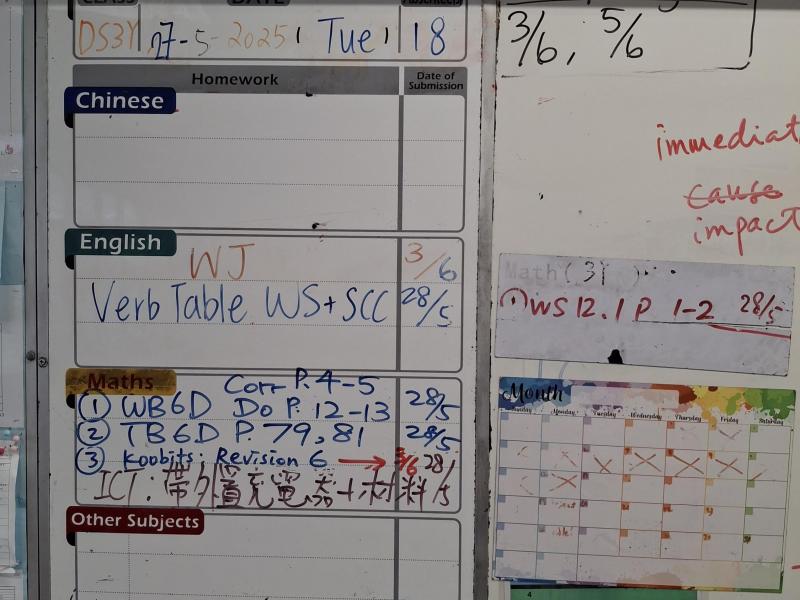 CLASS DATE
DS3Y 27-5-2025, Tue, 18
Homework
Date of Submission
Chinese
English
WJ 3/6
Verb Table WS+SCC 28/5
Maths
Corr P.4-5
① WB6D Do P.12-13 28/5
② TB6D P.79,81 28/5
③ Koobits: Revision 6 → 3/6 28/5
ICT: 帶外置充電器+材料
Other Subjects
3/6, 5/6
immediat
cause
impact
Math(3Y)
① WS 12.1 P 1-2 28/5
Month
Monday Tuesday Wednesday Thursday Friday Saturday